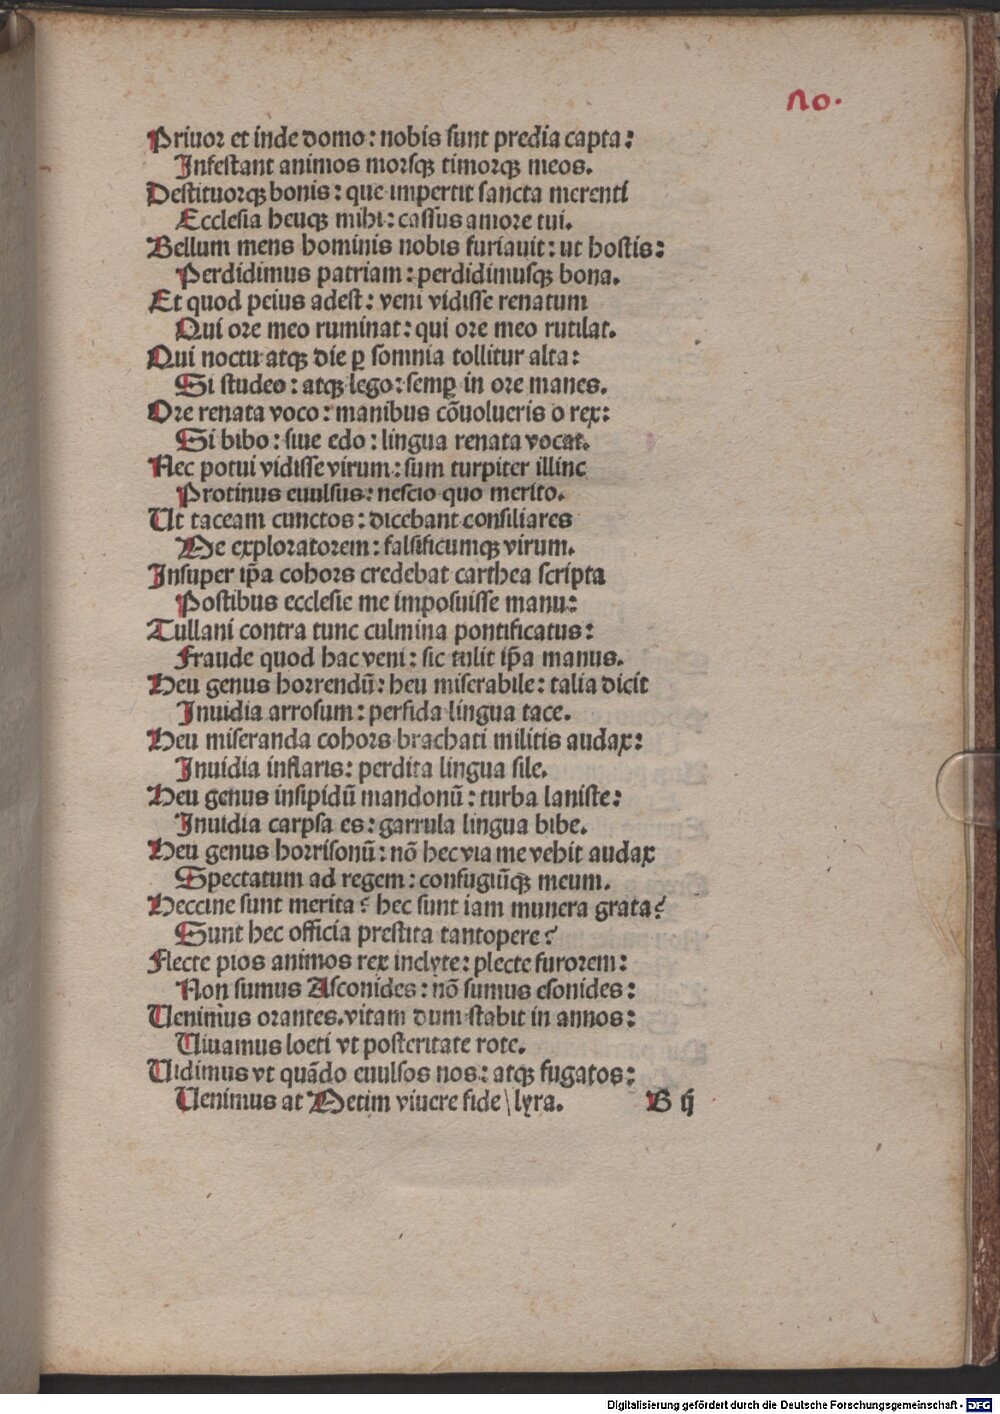 10.
Priuor et inde domo: nobis sunt predia capta:
Infestant animos morsqꝫ timorqꝫ meos.
Destituorqꝫ bonis: que impertit sancta merenti
Ecclesia heuqꝫ mihi: cassus amore tui.
Bellum mens hominis nobis furiauit: ut hostis:
Perdidimus patriam: perdidimusqꝫ bona.
Et quod peius adest: veni vidisse renatum
Qui ore meo ruminat: qui ore meo rutilat.
Qui noctu atqꝫ die ꝑ somnia tollitur alta:
Si studeo: atqꝫ lego: semꝑ in ore manes.
Ore renata voco: manibus cōuolueris o rex:
Si bibo: siue edo: lingua renata vocat.
Nec potui vidisse virum: sum turpiter illinc
Protinus euulsus: nescio quo merito.
Ut taceam cunctos: dicebant consiliares
Me exploratorem: falsificumqꝫ virum.
Insuper ip̄a cohors credebat carthea scripta
Postibus ecclesie me imposuisse manu:
Tullani contra tunc culmina pontificatus:
Fraude quod hac veni: sic tulit ip̄a manus.
Heu genus horrendū: heu miserabile: talia dicit
Inuidia arrosum: perfida lingua tace.
Heu miseranda cohors brachati militis audax:
Inuidia inflaris: perdita lingua sile.
Heu genus insipidū mandonū: turba laniste:
Inuidia carpsa es: garrula lingua bibe.
Heu genus horrisonū: nō hec via me vehit audax
Spectatum ad regem: confugiūqꝫ meum.
Heccine sunt merita? hec sunt iam munera grata?
Sunt hec officia prestita tantopere?
Flecte pios animos rex inclyte: plecte furorem:
Non sumus Asconides: nō sumus esonides:
Uenimus orantes. vitam dum stabit in annos:
Uiuamus loeti vt posteritate rote.
Uidimus vt quādo euulsos nos: atqꝫ fugatos:
Uenimus at Metim viuere fide \ lyra. B ij
Digitalisierung gefördert durch die Deutsche Forschungsgemeinschaft - DFG